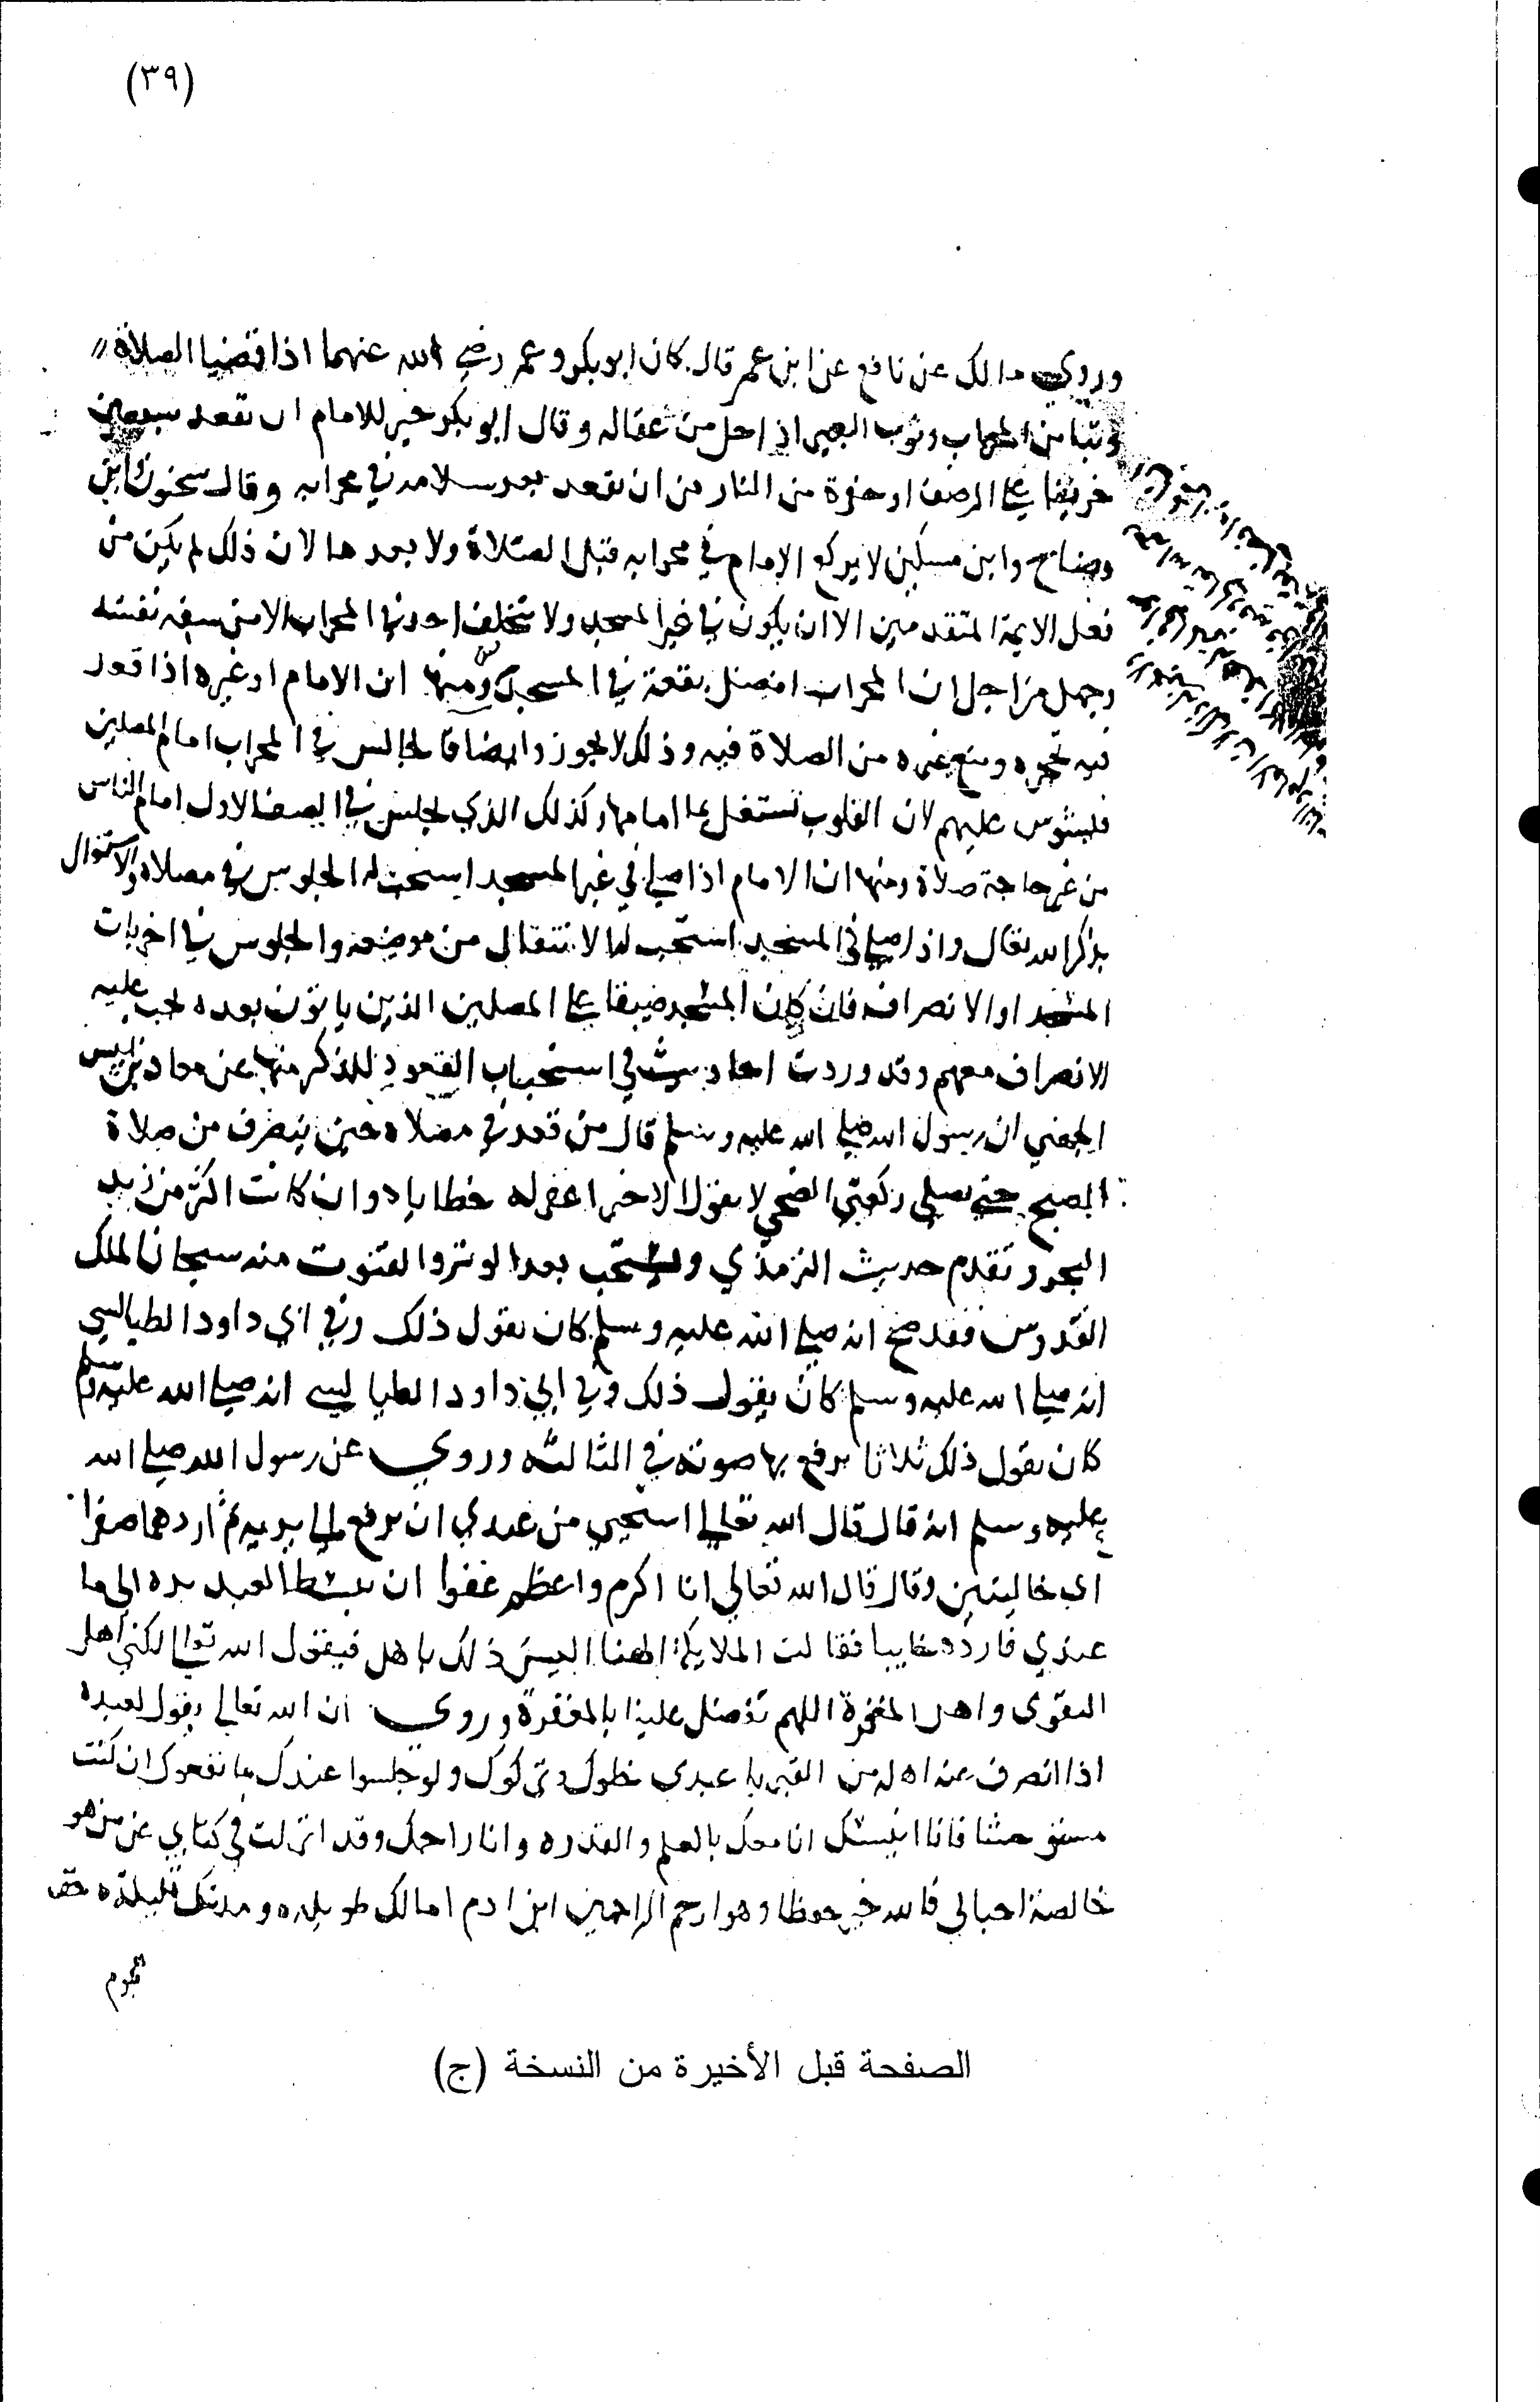 (٣٩)
وروي مالك عن نافع عن ابن عمر قال كان ابو بكر وعمر رضي الله عنهما اذا قضيا الصلاة
وثبا من المحراب وثوب البعير اذا حل من عقاله وقال ابو بكر خير للامام ان تقعد سبعين
خريفا على الرضف او حفرة من النار من ان تقعد بعد سلامه في محرابه وقال سحنون وابن
وضاح وابن مسكين لا يركع الامام في محرابه قبل الصلاة ولا بعدها لان ذلك لم يكن من
فعل الايمة المتقدمين الا ان يكون في غير المسجد ولا تخلف احد في المحراب الا من سفه نفسه
وجهل من اجل ان المحراب افضل بقعة في المسجد ومنها ان الامام او غيره اذا قعد
فيه تحجره ومنع غيره من الصلاة فيه وذلك لا يجوز وايضا فالجالس في المحراب امام المصلين
فليشوس عليهم لان القلوب تشتغل بما امامها وكذلك الذي يجلس في الصف الاول امام الناس
من غير حاجة صلاة ومنها ان الامام اذا صلي في غير المسجد استحب له الجلوس في مصلاه والاشتغال
بذكر الله تعالى واذا صلي في المسجد استحب له الانتقال من موضعه والجلوس في اخريات
المسجد او الانصراف فان كان المسجد ضيقا على المصلين الذين ياتون بعده يجب عليه
الانصراف معهم وقد وردت احاديث في استحباب القعود للذكر منها عن معاذ بن انيس
الجهني ان رسول الله صلي الله عليه وسلم قال من قعد في مصلاه حين ينصرف من صلاة
الصبح حتي يصلي ركعتي الضحي لا يقول الا خيرا غفر له خطاياه وان كانت اكثر من زبد
البحر وتقدم حديث الترمذي ويستحب بعد الوتر والقنوت منه سبحان الملك
القدوس فقد صح انه صلي الله عليه وسلم كان يقول ذلك وفي ابي داود الطيالسي
انه صلي الله عليه وسلم كان يقول ذلك وفي ابي داود الطيالسي انه صلي الله عليه وسلم
كان يقول ذلك ثلاثا يرفع بها صوته في الثالثه وروي عن رسول الله صلي الله
عليه وسلم انه قال قال الله تعالي استحيي من عبدي ان يرفع الي يديه ثم اردهما صفرا
اي خاليتين وقال قال الله تعالي انا اكرم واعظم عفوا ان يبسط العبد يده الي ما
عندي فارده خايبا فقالت الملايكة الهنا اليس ذلك باهل فيقول الله تعالي لكني اهل
التقوي واهل المغفرة اللهم تفضل علينا بالمغفرة وروي ان الله تعالي يقول لعبده
اذا انصرف عنه اهله من القبر يا عبدي حطوك وتركوك ولو جلسوا عندك ما نفعوك ان كنت
مستوحشا فانا انيسك انا معك بالعلم والقدره وانا راحمك وقد انزلت في كتابي عن من هو
خالصة احبابي فالله خير حفظا وهو ارحم الراحمين ابن ادم امالك طويله ومدتك قليله حتي
الصفحة قبل الأخيرة من النسخة (ج)